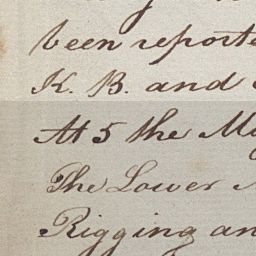 been reporte
K. B. and
At 5 the Ma
The Lower
Rigging an